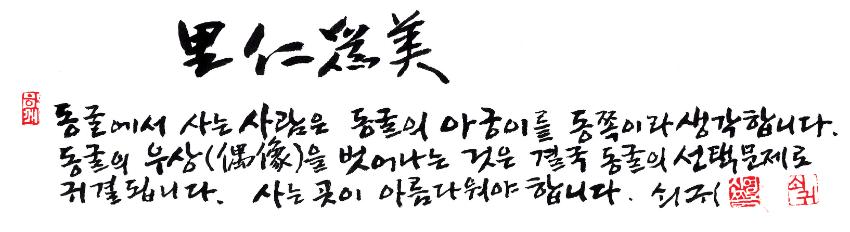 里仁爲美
동굴에서 사는 사람은 동굴의 아궁이를 동쪽이라 생각합니다.
동굴의 우상(偶像)을 벗어나는 것은 결국 동굴의 선택문제로
귀결됩니다. 사는 곳이 아름다워야 합니다. 쇠귀